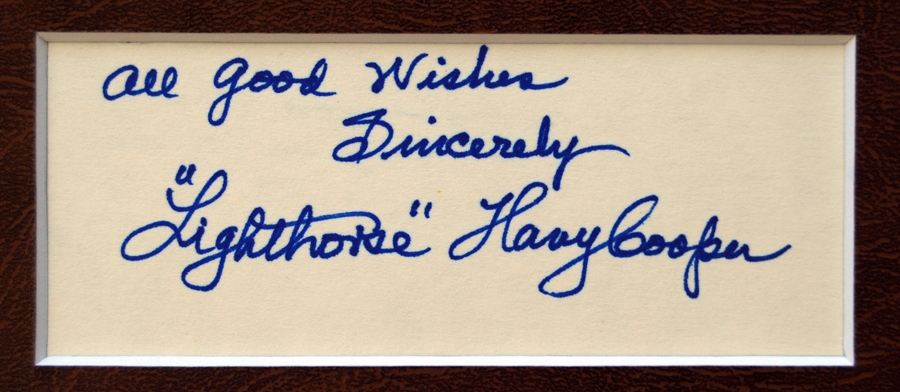 All Good Wishes
Sincerely
"Lighthorse" Harry Cooper